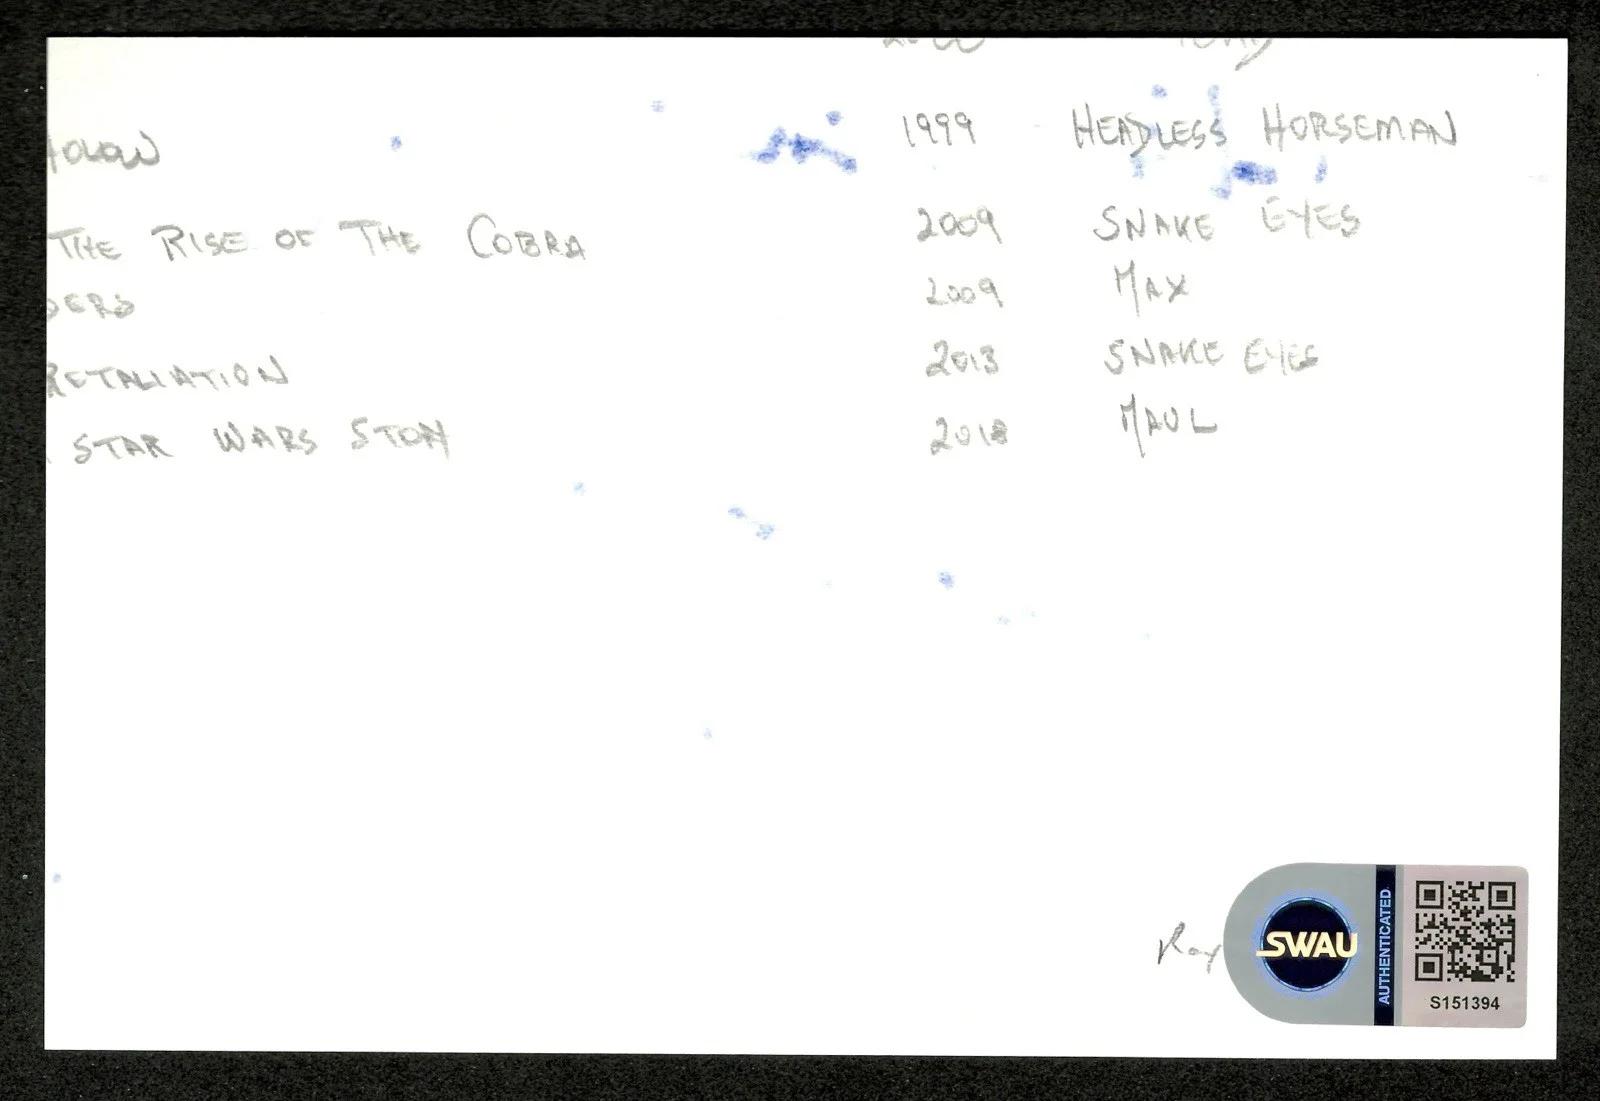 HOLOW 1999 HEADLESS HORSEMAN
THE RISE OF THE COBRA 2009 SNAKE EYES
DERS 2009 MAX
RETALIATION 2013 SNAKE EYES
STAR WARS STORY 2018 MAUL
Ray
SWAU
AUTHENTICATED
S151394